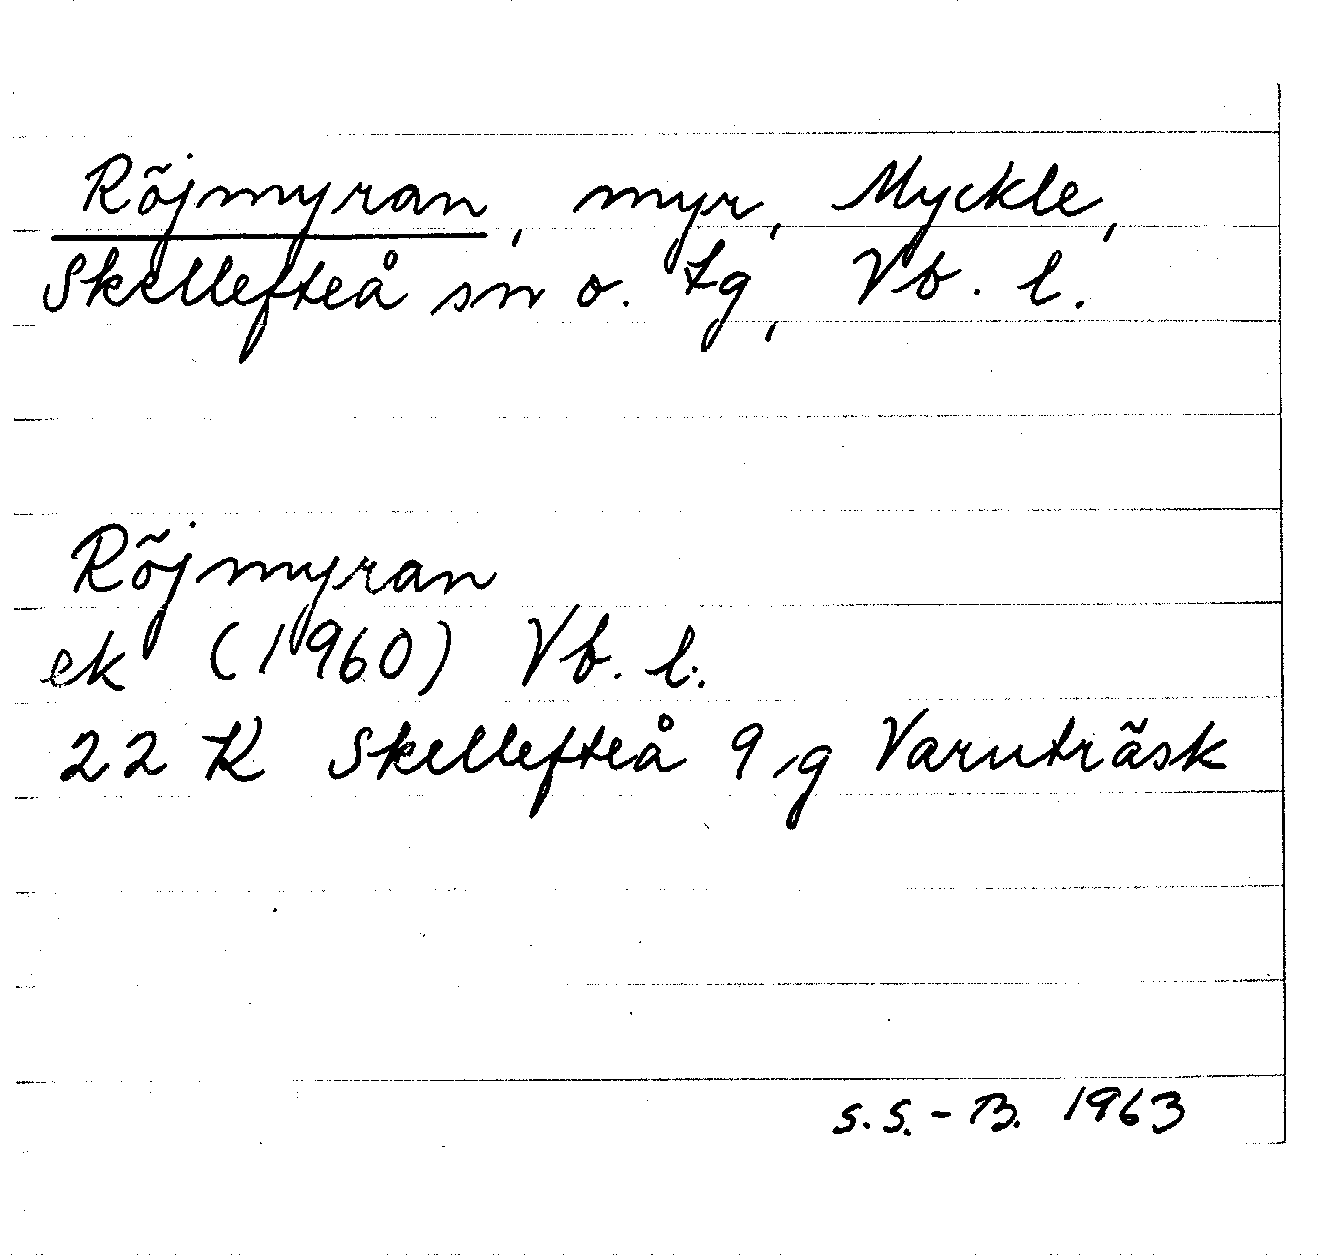 Röjmyran, myr, Myckle,
Skellefteå sn o. tg, Vb. l.
Röjmyran
ek (1960) Vb. l.
22 K Skellefteå 9 g Varuträsk
S.S.-B. 1963